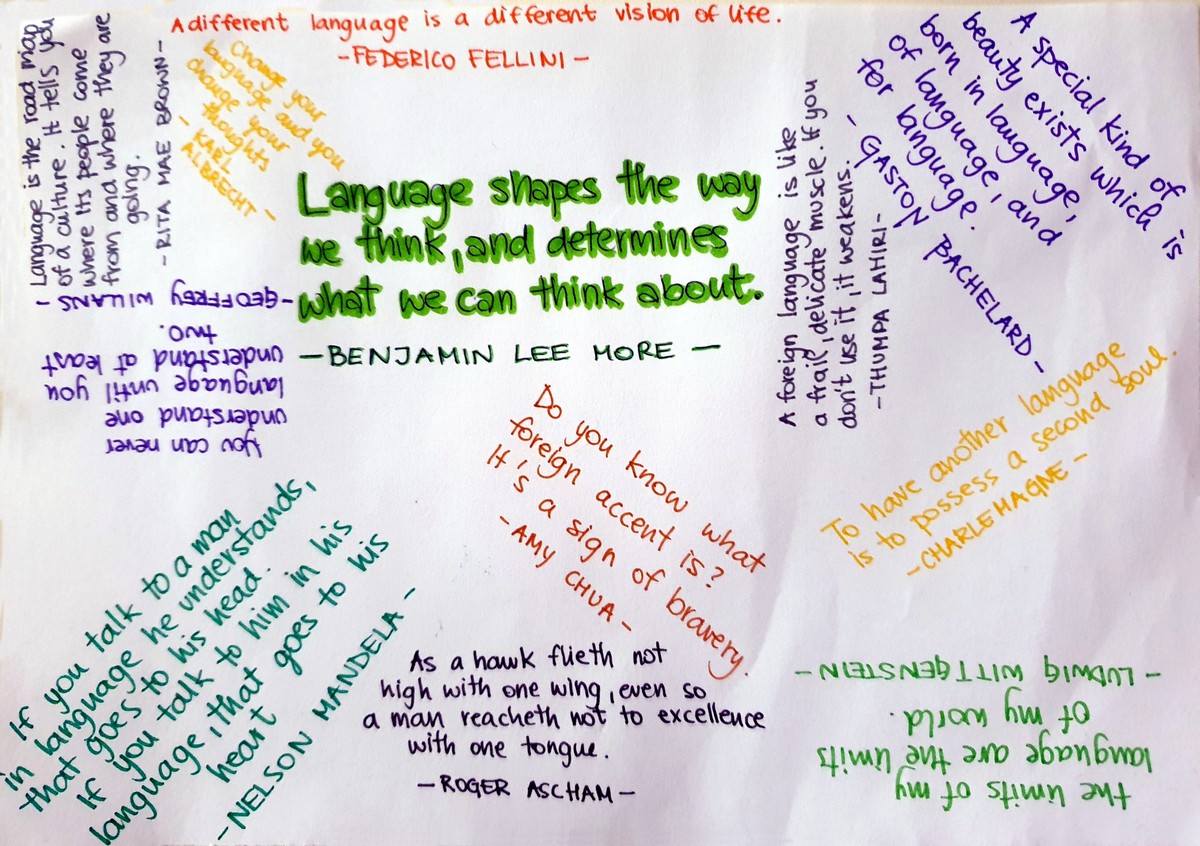 A different language is a different vision of life.
-FEDERICO FELLINI-
Language is the road map
of a culture. It tells you
where its people come
from and where they are
going.
-RITA MAE BROWN-
Change your
language and you
change your
thoughts
- KARL
ALBRECHT -
Language shapes the way
we think, and determines
what we can think about.
-BENJAMIN LEE MORE-
A foreign language is like
a frail, delicate muscle. If you
don't use it, it weakens.
-THUMPA LAHIRI-
A special kind of
beauty exists which is
born in language,
of language, and
for language.
- GASTON BACHELARD -
You can never
understand one
language until you
understand at least
two.
-GEOFFREY WILLANS-
Do you know what
foreign accent is?
It's a sign of bravery.
-AMY CHUA-
To have another language
is to possess a second soul.
-CHARLEMAGNE-
If you talk to a man
in language he understands,
that goes to his head.
If you talk to him in his
language, that goes to his
heart
-NELSON MANDELA-
As a hawk flieth not
high with one wing, even so
a man reacheth not to excellence
with one tongue.
-ROGER ASCHAM-
the limits of my
language are the limits
of my world.
- LUDWIG WITTGENSTEIN-